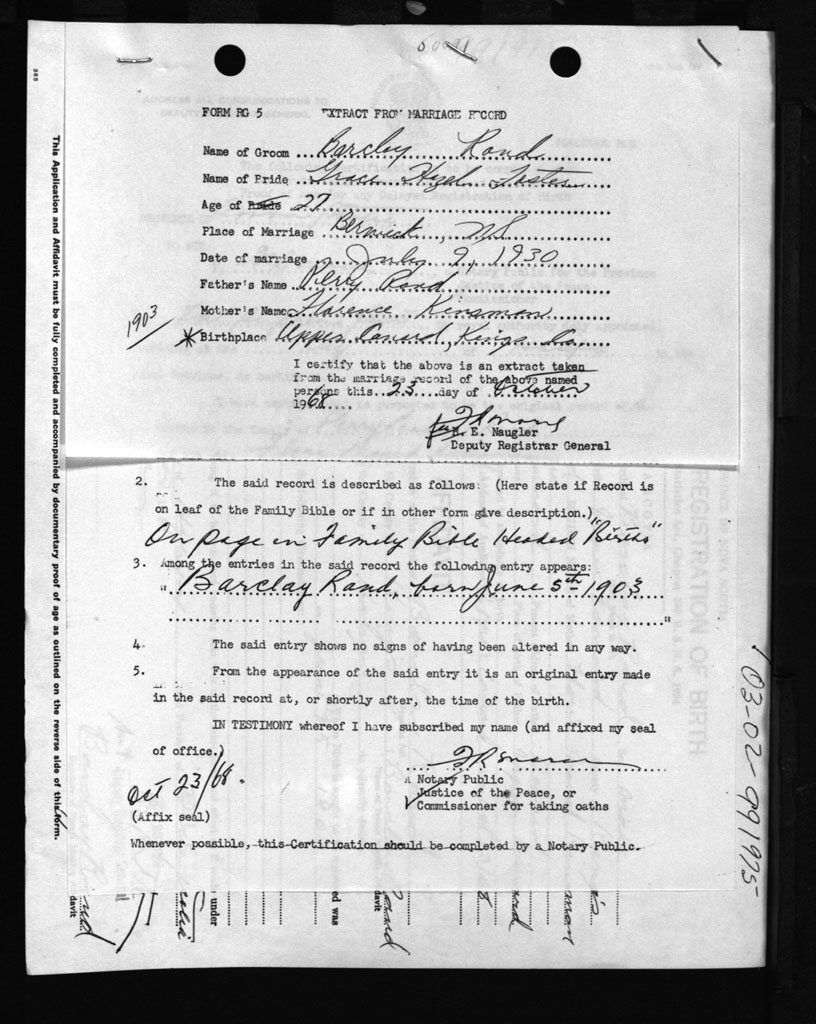 FORM RG 5 EXTRACT FROM MARRIAGE RECORD
Name of Groom Barclay Rand
Name of Bride Grace Hazel
Age of Bride 27
Place of Marriage Berwick, N.S.
Date of marriage July 9, 1930
Father's Name Perry Rand
Mother's Name Florence Kinsman
1903
* Birthplace Upper Canard, Kings Co.
I certify that the above is an extract taken
from the marriage record of the above named
persons this 23 day of October
1968
for E. Naugler
Deputy Registrar General
2. The said record is described as follows: (Here state if Record is
on leaf of the Family Bible or if in other form give description.)
On page in Family Bible Headed "Births"
3. Among the entries in the said record the following entry appears:
" Barclay Rand, born June 5th 1903
"
4. The said entry shows no signs of having been altered in any way.
5. From the appearance of the said entry it is an original entry made
in the said record at, or shortly after, the time of the birth.
IN TESTIMONY whereof I have subscribed my name (and affixed my seal
of office.)
Oct 23/68.
A Notary Public
Justice of the Peace, or
Commissioner for taking oaths
(Affix seal)
Whenever possible, this Certification should be completed by a Notary Public.
This Application and Affidavit must be fully completed and accompanied by documentary proof of age as outlined on the reverse side of this form.
REGISTRATION OF BIRTH
103-02-991975
davit
under
ed was
davit